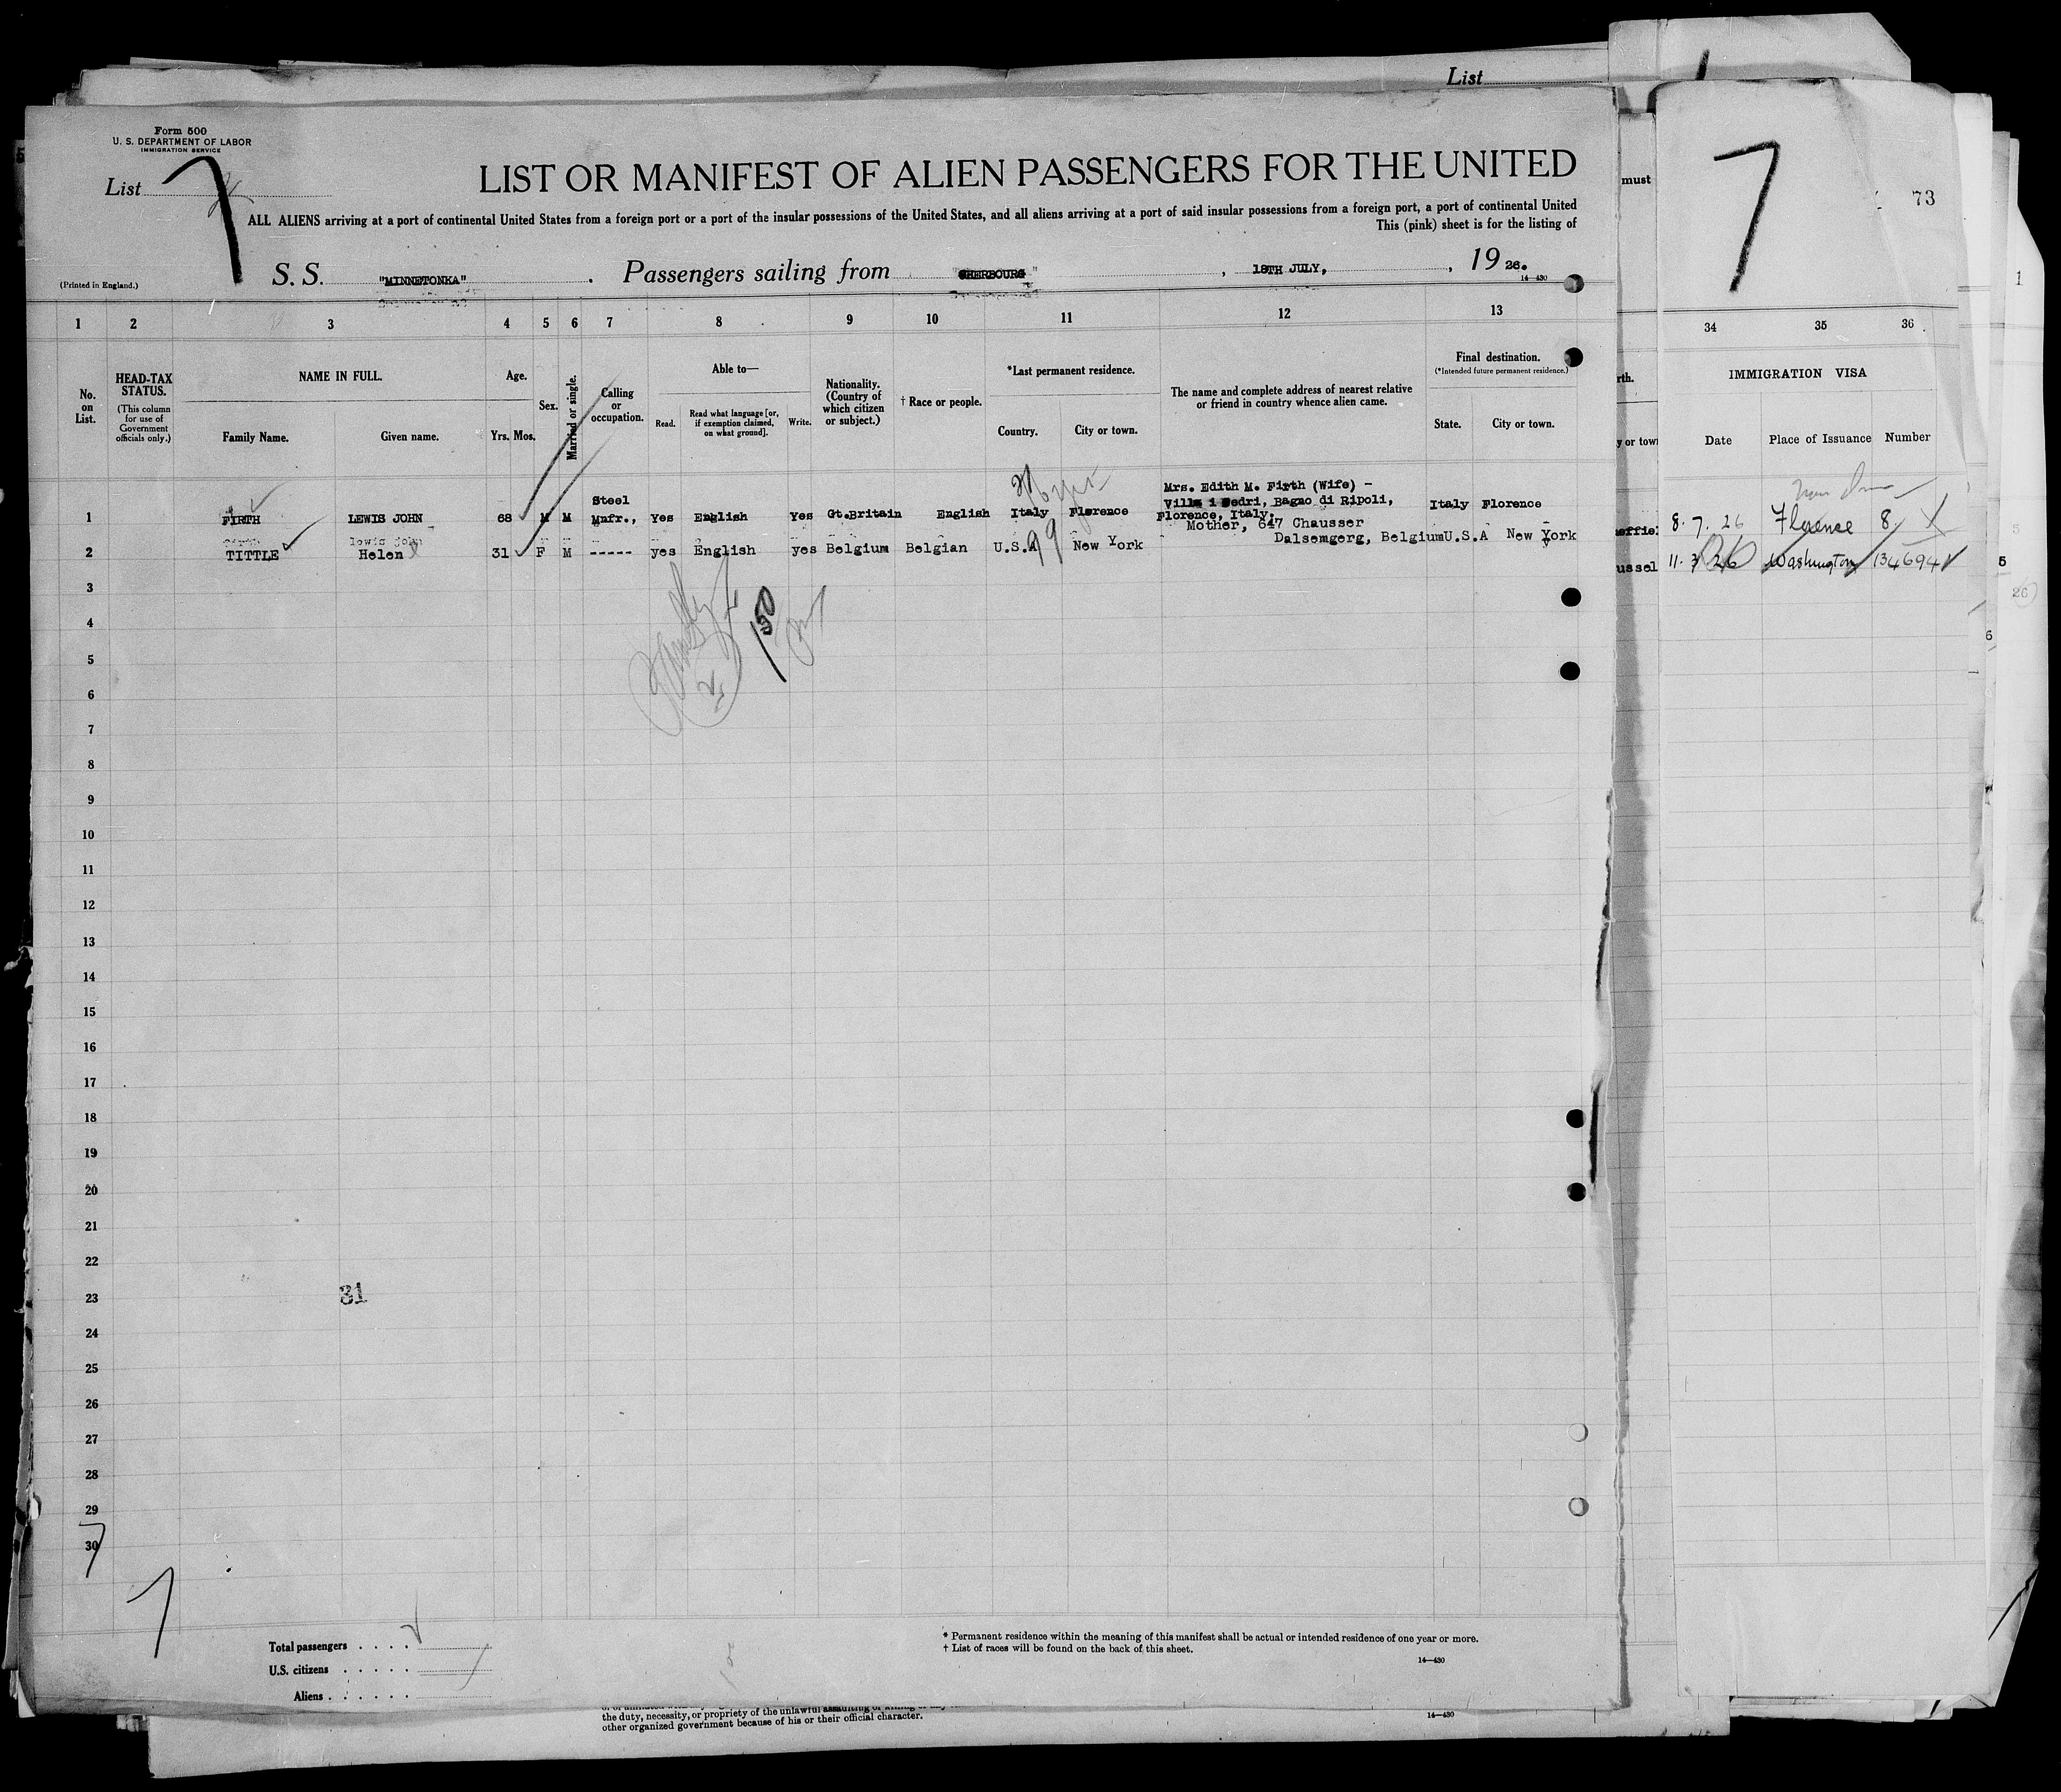 List
Form 500
U. S. DEPARTMENT OF LABOR
IMMIGRATION SERVICE
List
7
LIST OR MANIFEST OF ALIEN PASSENGERS FOR THE UNITED
ALL ALIENS arriving at a port of continental United States from a foreign port or a port of the insular possessions of the United States, and all aliens arriving at a port of said insular possessions from a foreign port, a port of continental United
This (pink) sheet is for the listing of
must
7
73
(Printed in England.)
S. S. "MINNETONKA" . Passengers sailing from "CHERBOURG" , 18TH JULY, , 19 26.
14—430
1 2 3 4 5 6 7 8 9 10 11 12 13
34 35 36
No. on List.
HEAD-TAX STATUS.
(This column for use of Government officials only.)
NAME IN FULL.
Family Name. Given name.
Age.
Yrs. Mos.
Sex.
Married or single.
Calling or occupation.
Able to—
Read. Read what language [or, if exemption claimed, on what ground]. Write.
Nationality. (Country of which citizen or subject.)
† Race or people.
*Last permanent residence.
Country. City or town.
The name and complete address of nearest relative or friend in country whence alien came.
Final destination.
(*Intended future permanent residence.)
State. City or town.
rth.
y or town
IMMIGRATION VISA
Date Place of Issuance Number
1 FIRTH LEWIS JOHN 68 M M Steel Mnfr., Yes English Yes Gt.Britain English Italy Florence Mrs. Edith M. Firth (Wife) - Villa i Cedri, Bagno di Ripoli, Florence, Italy. Italy Florence
effiel 8. 7. 26 Florence 8
2 TITTLE Helen 31 F M ----- yes English yes Belgium Belgian U.S.A New York Mother, 647 Chausser Dalsemgerg, Belgium U.S.A New York
ussel 11. 3 26 Washington 134694
99
Family
2
150
3
4
5
6
7
8
9
10
11
12
13
14
15
16
17
18
19
20
21
22
23
31
24
25
26
27
28
29
30
7
7
Total passengers . . . .
U.S. citizens . . . . .
Aliens . . . . . .
* Permanent residence within the meaning of this manifest shall be actual or intended residence of one year or more.
† List of races will be found on the back of this sheet.
14—430
the duty, necessity, or propriety of the unlawful assaulting or killing of any
other organized government because of his or their official character.
14—430
1
5
26
6